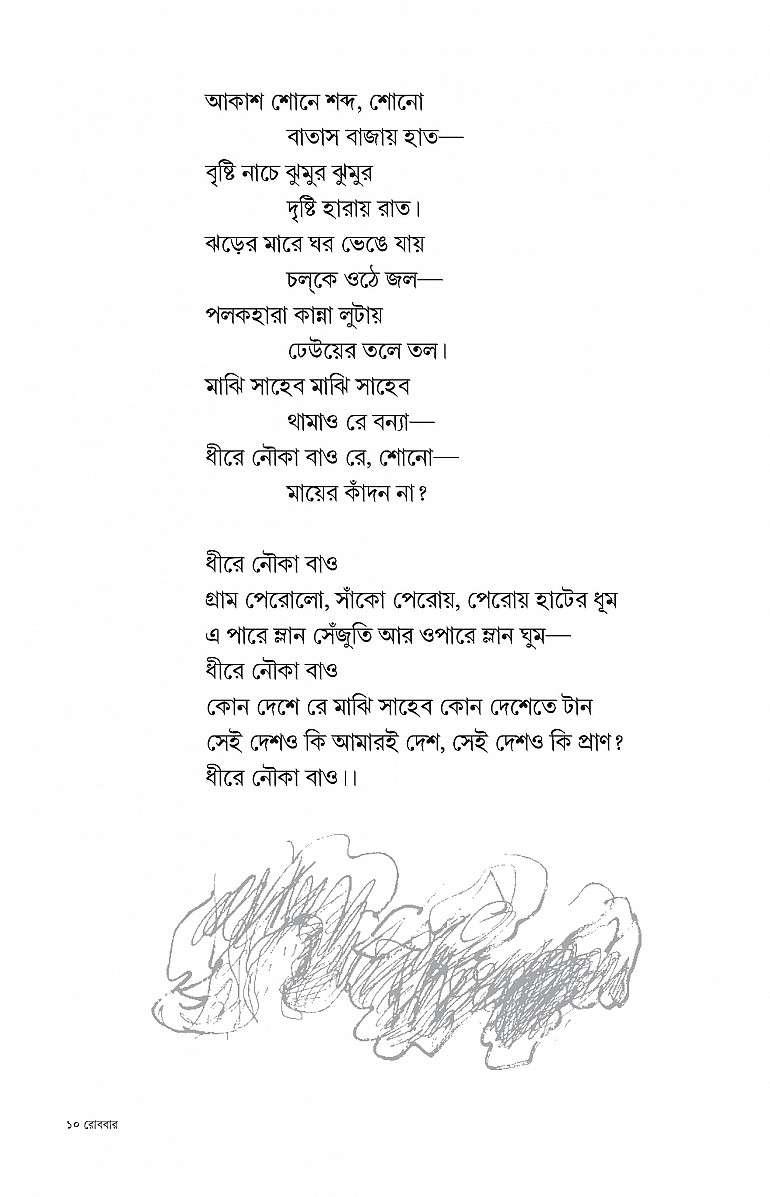 আকাশ শোনে শব্দ, শোনো
বাতাস বাজায় হাত—
বৃষ্টি নাচে ঝুমুর ঝুমুর
দৃষ্টি হারায় রাত।
ঝড়ের মারে ঘর ভেঙে যায়
চল্‌কে ওঠে জল—
পলকহারা কান্না লুটায়
ঢেউয়ের তলে তল।
মাঝি সাহেব মাঝি সাহেব
থামাও রে বন্যা—
ধীরে নৌকা বাও রে, শোনো—
মায়ের কাঁদন না?
ধীরে নৌকা বাও
গ্রাম পেরোলো, সাঁকো পেরোয়, পেরোয় হাটের ধূম
এ পারে ম্লান সেঁজুতি আর ওপারে ম্লান ঘুম—
ধীরে নৌকা বাও
কোন দেশে রে মাঝি সাহেব কোন দেশেতে টান
সেই দেশও কি আমারই দেশ, সেই দেশও কি প্রাণ?
ধীরে নৌকা বাও।।
১০ রোববার